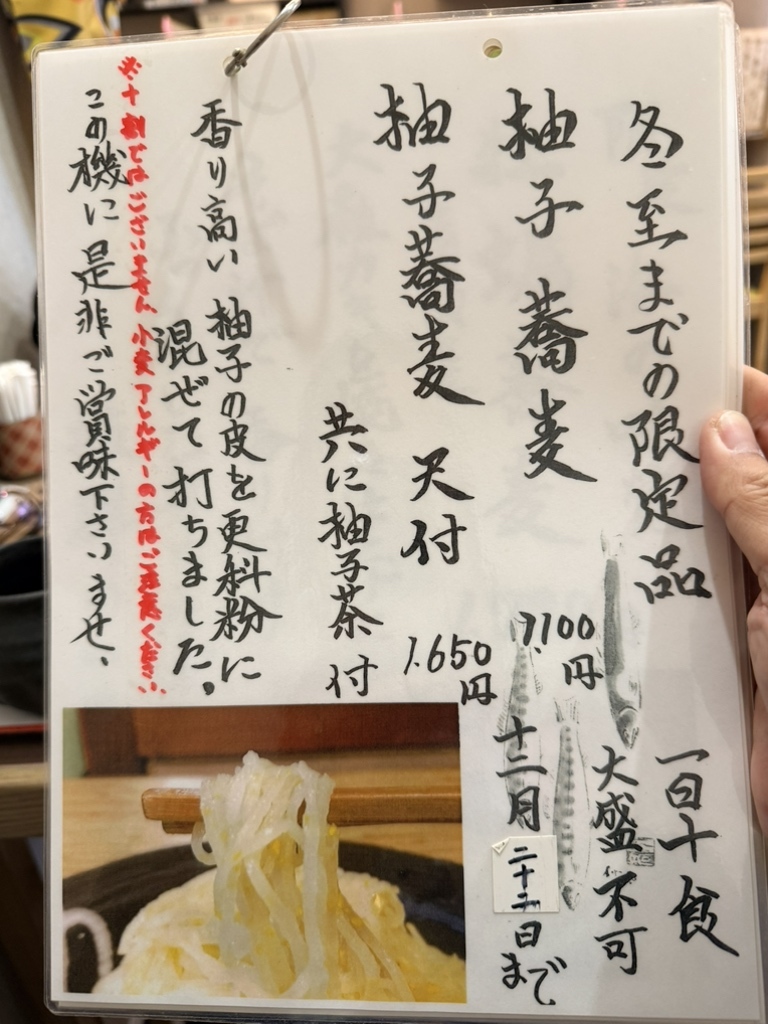 冬至までの限定品
一日十食
大盛不可
柚子蕎麦
1100円
十二月二十二日まで
柚子蕎麦 天付
1.650円
共に柚子茶付
香り高い柚子の皮を更科粉に
混ぜて打ちました。
※十割ではございません 小麦アレルギーの方はご注意ください。
この機に是非ご賞味下さいませ、